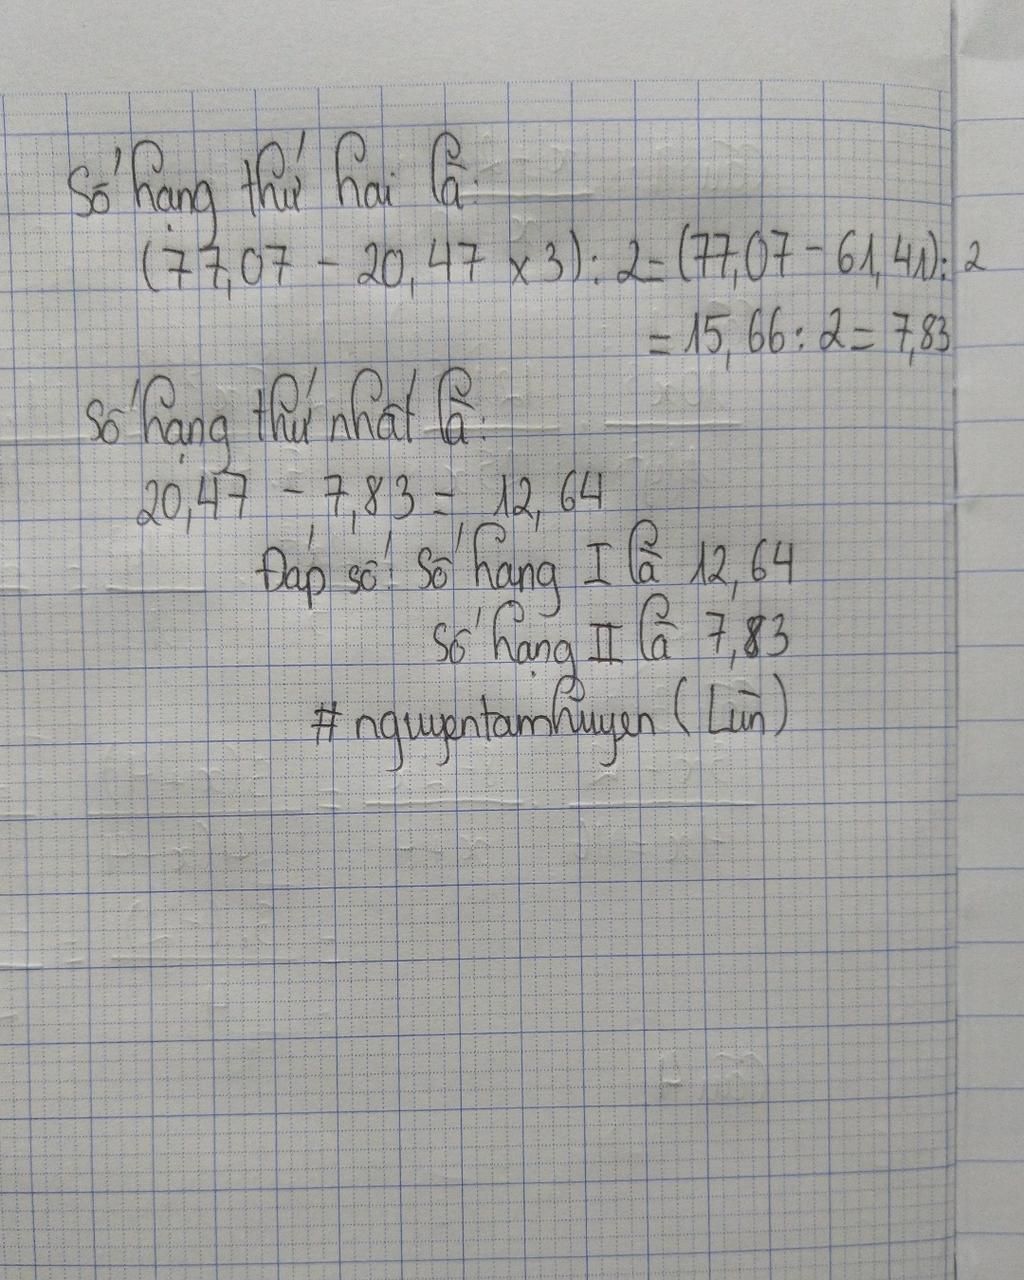 Số hạng thứ hai là:
(77,07 - 20,47 x 3) : 2 = (77,07 - 61,41) : 2
= 15,66 : 2 = 7,83
Số hạng thứ nhất là:
20,47 - 7,83 = 12,64
Đáp số: Số hạng I là 12,64
Số hạng II là 7,83
#nguyentamhuyen (Lùn)